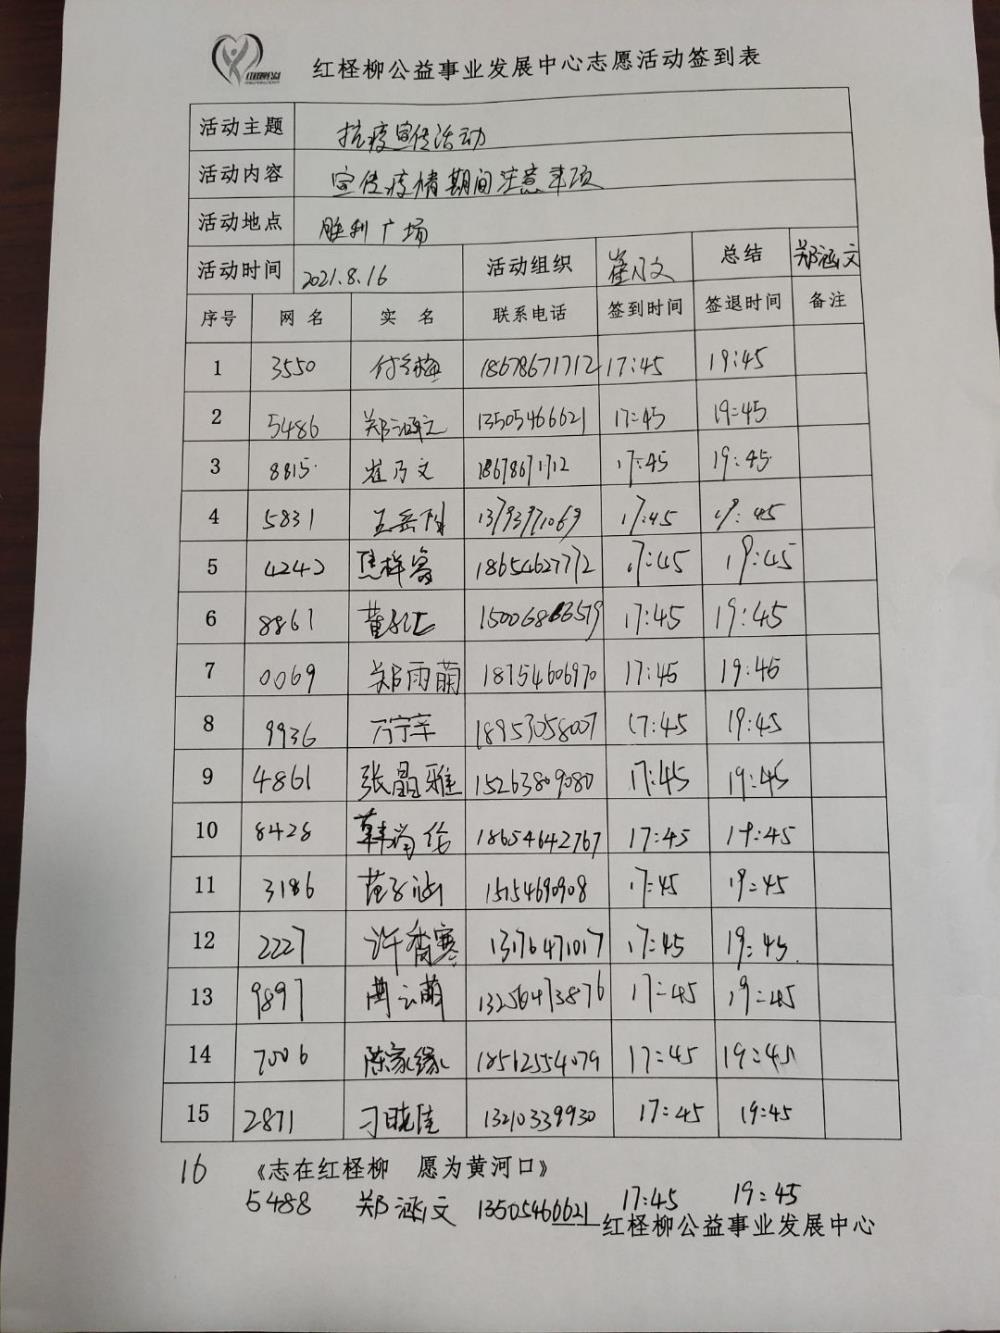 红柽柳公益事业发展中心志愿活动签到表
活动主题 抗疫宣传活动
活动内容 宣传疫情期间注意事项
活动地点 胜利广场
活动时间 2021.8.16 活动组织 崔乃文 总结 郑涵文
序号 网名 实名 联系电话 签到时间 签退时间 备注
1 3550 18678671712 17:45 19:45
2 5486 郑涵文 13505466621 17:45 19:45
3 8815 崔乃文 18678671712 17:45 19:45
4 5831 13793971069 17:45 19:45
5 4242 18654627772 17:45 19:45
6 8861 17:45 19:45
7 0069 郑雨萌 18754606970 17:45 19:45
8 9936 18953058007 17:45 19:45
9 4861 张晶雅 15263809080 17:45 19:45
10 8428 18654642767 17:45 19:45
11 3186 范子涵 15154690908 17:45 19:45
12 2227 许香寒 13176471017 17:45 19:45
13 9897 13256473876 17:45 19:45
14 7006 陈家缘 18562554079 17:45 19:45
15 2871 刁晓佳 13210339930 17:45 19:45
16 《志在红柽柳 愿为黄河口》
5488 郑涵文 13505466621 17:45 19:45
红柽柳公益事业发展中心